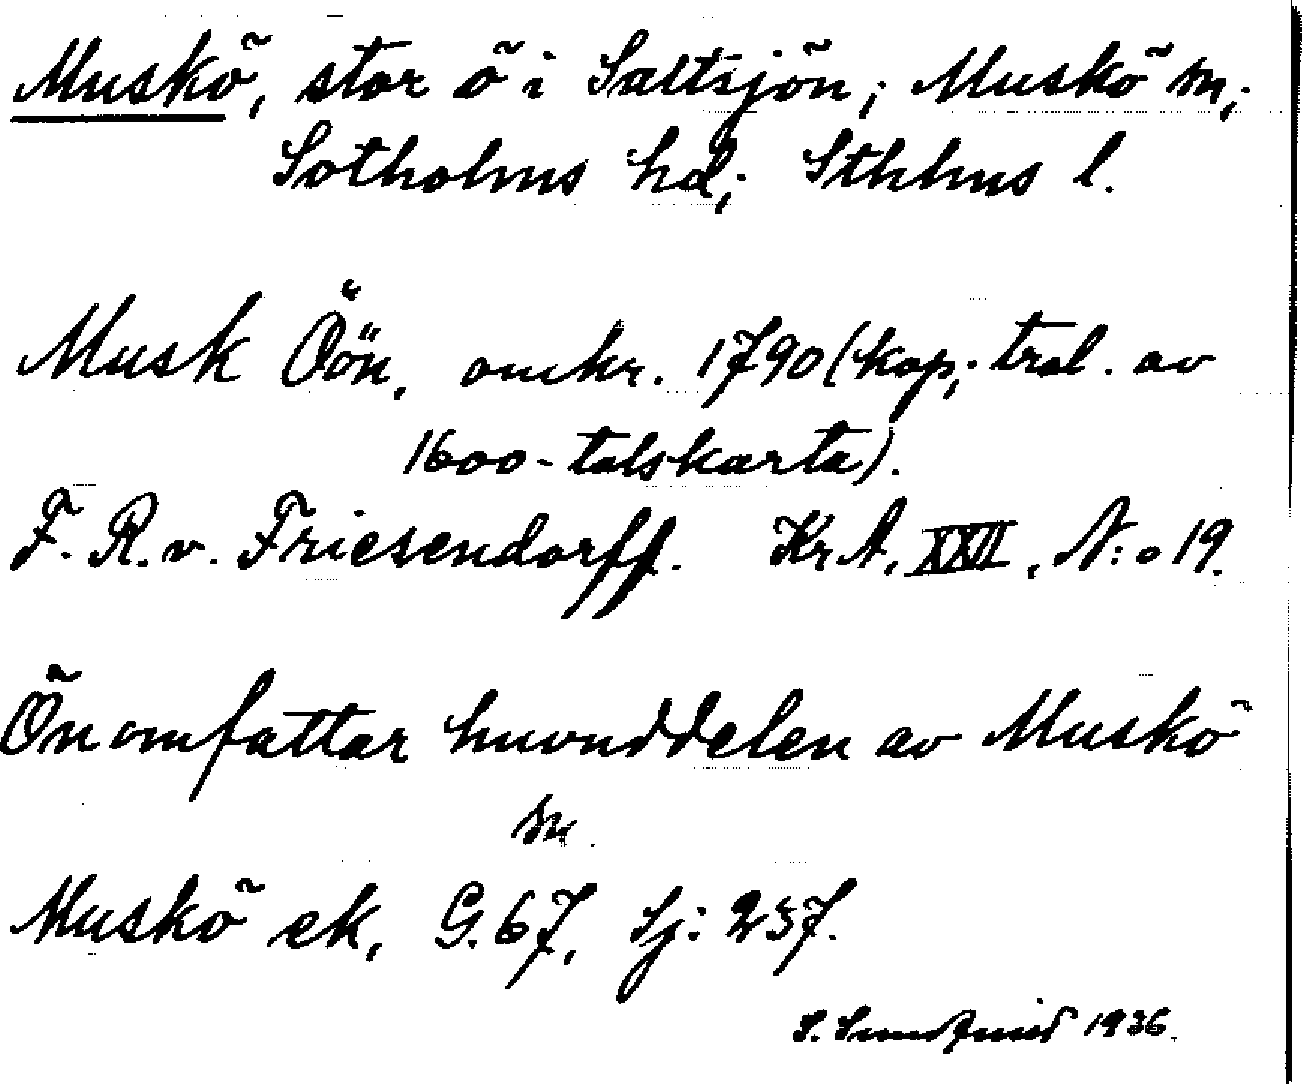 Muskö, stor ö i Saltsjön; Muskö sn;
Sotholms hd; Sthlms l.
Musk Öön, omkr. 1790 (kop; trol. av
1600-talskarta).
F. R. v. Friesendorff. Kr A, XXII, N:o 19.
Ön omfattar huvuddelen av Muskö
sn.
Muskö ek, G. 67, Sj: 237.
S. Sundqvist 1936.